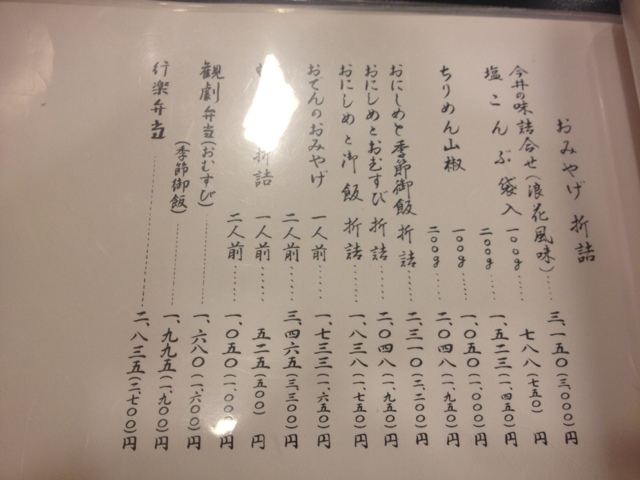 おみやげ 折詰
今井の味詰合せ(浪花風味)……三、一五〇(三、〇〇〇)円
塩こんぶ袋入 一〇〇g……七八八(七五〇)円
二〇〇g……一、五二三(一、四五〇)円
ちりめん山椒 一〇〇g……一、〇五〇(一、〇〇〇)円
二〇〇g……二、〇四八(一、九五〇)円
おにしめと季節御飯 折詰……二、三一〇(二、二〇〇)円
おにしめとおむすび 折詰……二、〇四八(一、九五〇)円
おにしめと御飯 折詰……一、八三八(一、七五〇)円
おでんのおみやげ 一人前……一、七三三(一、六五〇)円
二人前……三、四六五(三、三〇〇)円
折詰 一人前……五二五(五〇〇)円
二人前……一、〇五〇(一、〇〇〇)円
観劇弁当(おむすび)……一、六八〇(一、六〇〇)円
(季節御飯)……一、九九五(一、九〇〇)円
行楽弁当……二、八三五(二、七〇〇)円